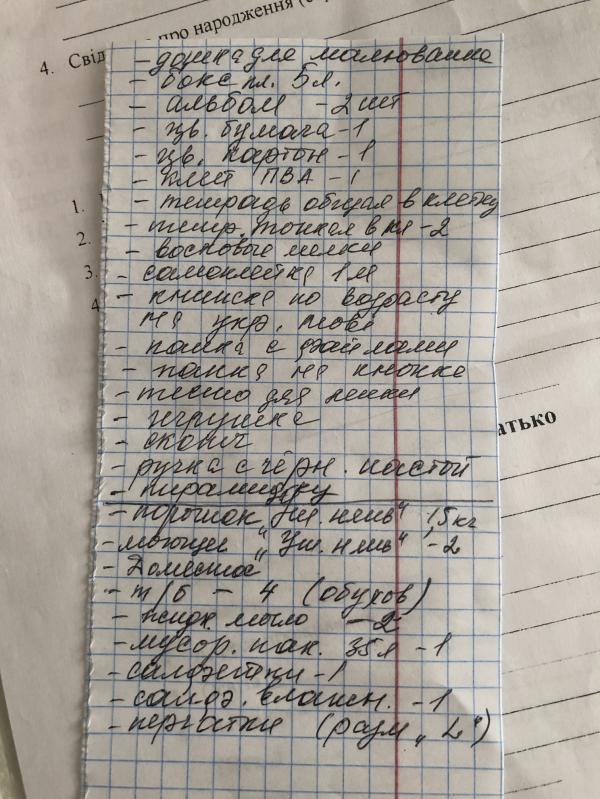 про народження (с
4. Свід
- дошка для малювання
- бокс пл. 5л.
- альбом - 2 шт
- цв. бумага - 1
- цв. картон - 1
- клей ПВА - 1
1.
- тетрадь общая в клетку
2.
- тетр. тонкая в кл - 2
- восковые мелки
3.
- самоклейка 1 м
4
- книжка по возрасту
на укр. мове
- папка с файлами
- папка на кнопке
- тесто для лепки
атько
- игрушка
- скотч
- ручка с чёрн. пастой
- пирамидку
- порошок „Уш. нянь" 1,5 кг
- моющее „Уш. нянь" - 2
- Доместос
- т/б - 4 (обухов)
- жидк. мыло - 2
- мусор. пак. 35л - 1
- салфетки - 1
- салф. влажн. - 1
- перчатки (разм „L")